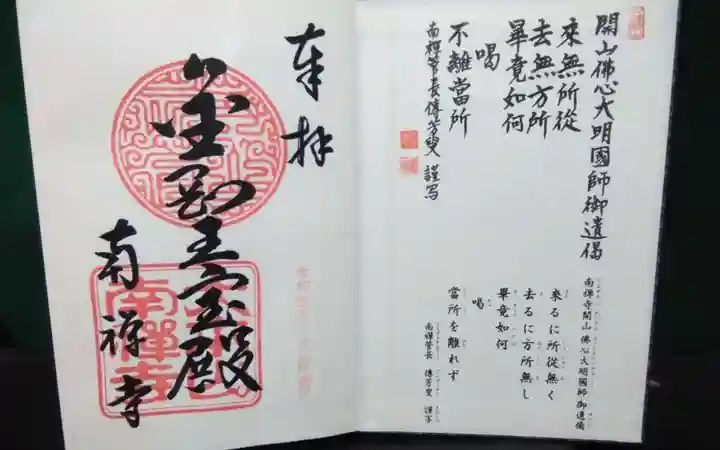 開山佛心大明國師御遺偈
來無所從
去無方所
畢竟如何
喝
不離當所
南禪管長傳芳叟 謹写
南禅寺開山 佛心大明國師御遺偈
来るに所從無く
去るに方所無し
畢竟如何
喝
當所を離れず
南禅管長 傳芳叟 謹写
奉拝
金剛王宝殿
南禅寺
南禪寺